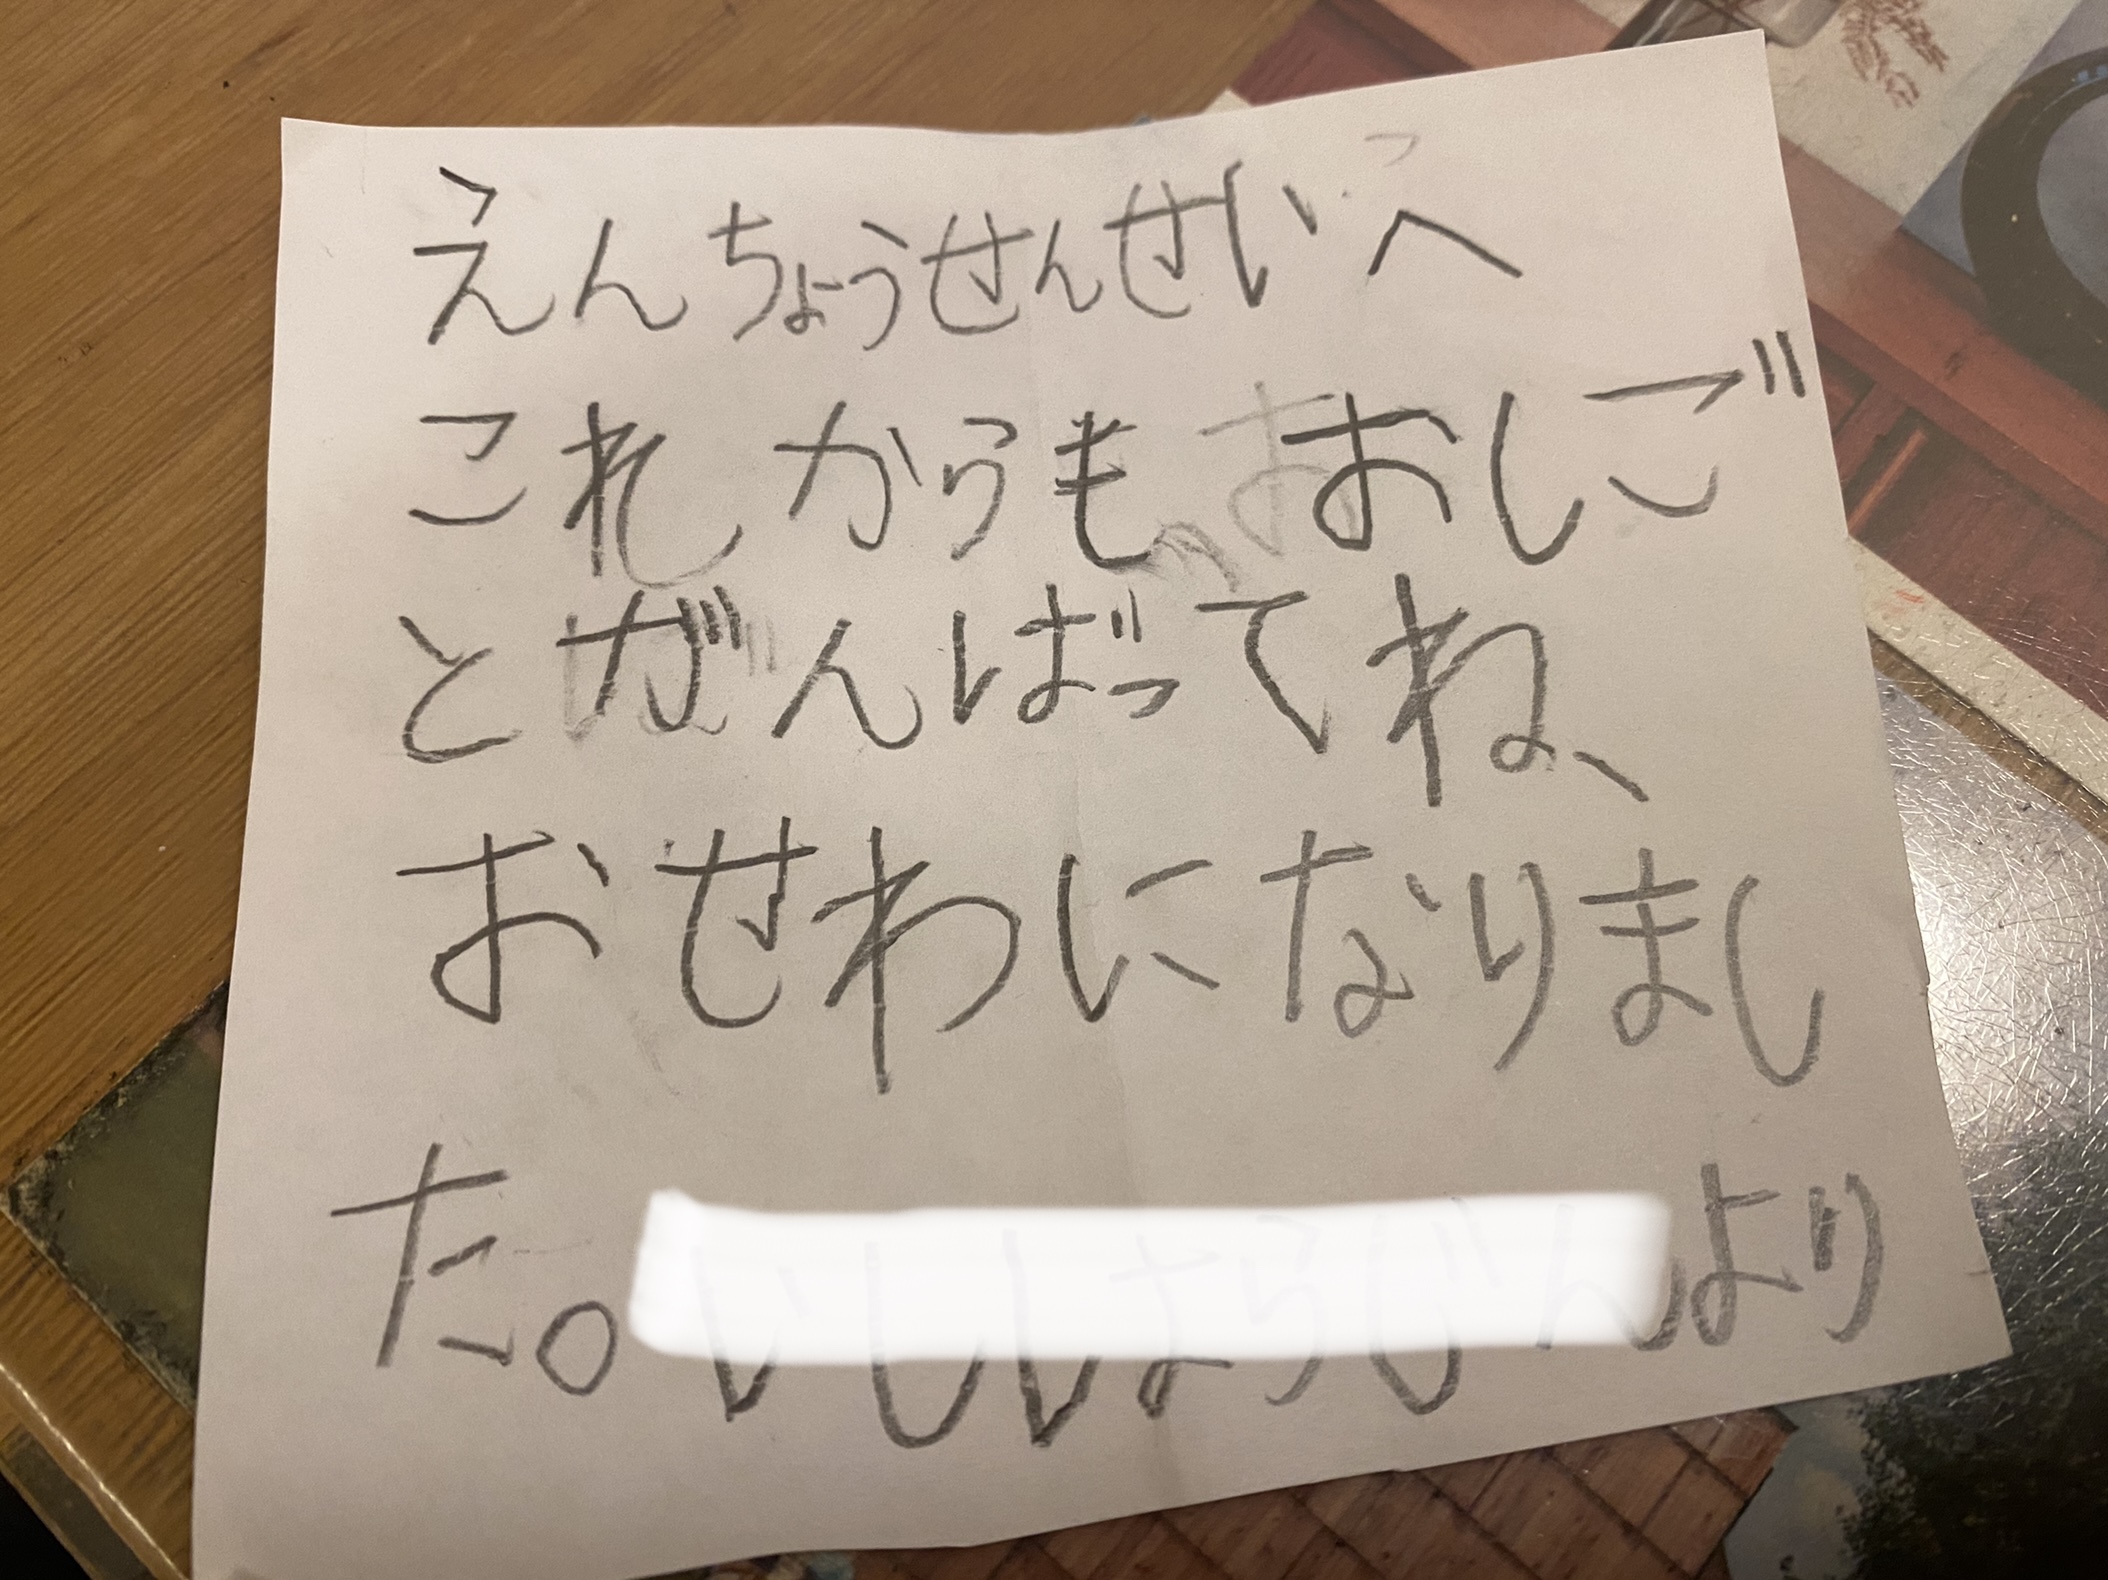 えんちょうせんせいへ
これからも、おしご
とがんばってね、
おせわになりまし
た。より